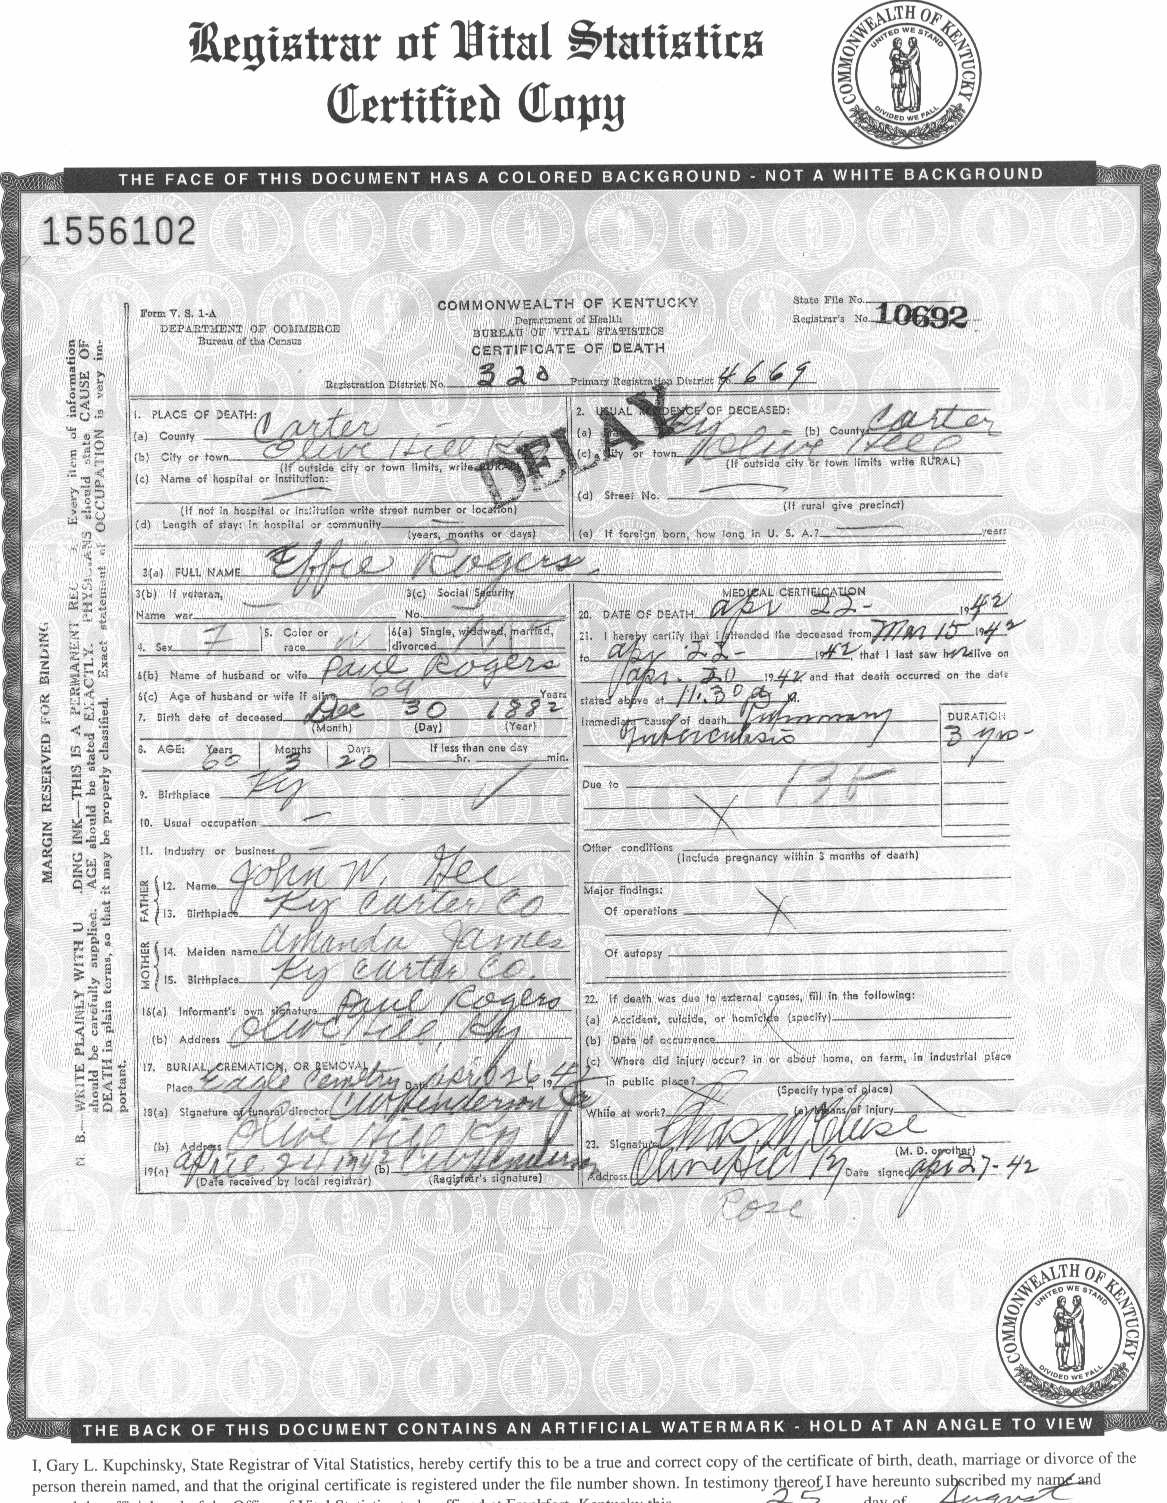 Registrar of Vital Statistics
Certified Copy
COMMONWEALTH OF KENTUCKY
UNITED WE STAND
DIVIDED WE FALL
THE FACE OF THIS DOCUMENT HAS A COLORED BACKGROUND - NOT A WHITE BACKGROUND
1556102
Form V. S. 1-A
DEPARTMENT OF COMMERCE
Bureau of the Census
COMMONWEALTH OF KENTUCKY
Department of Health
BUREAU OF VITAL STATISTICS
CERTIFICATE OF DEATH
State File No.
Registrar's No. 10692
Registration District No. 320 Primary Registration District 4669
DELAY
1. PLACE OF DEATH:
(a) County Carter
(b) City or town Olive Hill
(If outside city or town limits, write RURAL)
(c) Name of hospital or institution:
(If not in hospital or institution write street number or location)
(d) Length of stay: In hospital or community
(years, months or days)
2. USUAL RESIDENCE OF DECEASED:
(a) State Ky (b) County Carter
(c) City or town Olive Hill
(If outside city or town limits write RURAL)
(d) Street No.
(If rural give precinct)
(e) If foreign born, how long in U. S. A.? years
3(a) FULL NAME Effie Rogers
3(b) If veteran,
Name war
3(c) Social Security
No.
4. Sex F
5. Color or
race W
6(a) Single, widowed, married,
divorced
6(b) Name of husband or wife Paul Rogers
6(c) Age of husband or wife if alive 69 Years
7. Birth date of deceased Dec 30 1882
(Month) (Day) (Year)
8. AGE: Years Months Days If less than one day
60 3 20 hr. min.
9. Birthplace Ky
10. Usual occupation
11. Industry or business
FATHER
12. Name John W. Gee
13. Birthplace Ky Carter Co
MOTHER
14. Maiden name Amanda James
15. Birthplace Ky Carter Co.
16(a) Informant's own signature Paul Rogers
(b) Address Olive Hill, Ky
17. BURIAL, CREMATION, OR REMOVAL
Place Eagle Cemetry Date Apr 26 1942
18(a) Signature of funeral director CW Henderson
(b) Address Olive Hill Ky
19(a) April 24 1942 (b) CW Henderson
(Date received by local registrar) (Registrar's signature)
MEDICAL CERTIFICATION
20. DATE OF DEATH Apr 22- 1942
21. I hereby certify that I attended the deceased from Mar 15 1942
to Apr 22- 1942, that I last saw her alive on
Apr. 20 1942 and that death occurred on the date
stated above at 11:30 P M.
Immediate cause of death Pulmonary
Tuberculosis
DURATION
3 yrs-
Due to
Other conditions
(Include pregnancy within 3 months of death)
Major findings:
Of operations
Of autopsy
22. If death was due to external causes, fill in the following:
(a) Accident, suicide, or homicide (specify)
(b) Date of occurrence
(c) Where did injury occur? In or about home, on farm, in industrial place
in public place?
(Specify type of place)
While at work? (e) Means of injury
23. Signature
(M. D. or other)
Address Olive Hill Ky Date signed Apr 27-42
Rose
MARGIN RESERVED FOR BINDING
N. B.—WRITE PLAINLY WITH U DING INK—THIS IS A PERMANENT REC Every item of information
should be carefully supplied. AGE should be stated EXACTLY. PHYSICIANS should state CAUSE OF
DEATH in plain terms, so that it may be properly classified. Exact statement of OCCUPATION is very im-
portant.
COMMONWEALTH OF KENTUCKY
UNITED WE STAND
DIVIDED WE FALL
THE BACK OF THIS DOCUMENT CONTAINS AN ARTIFICIAL WATERMARK - HOLD AT AN ANGLE TO VIEW
I, Gary L. Kupchinsky, State Registrar of Vital Statistics, hereby certify this to be a true and correct copy of the certificate of birth, death, marriage or divorce of the
person therein named, and that the original certificate is registered under the file number shown. In testimony thereof I have hereunto subscribed my name and
25 day of August